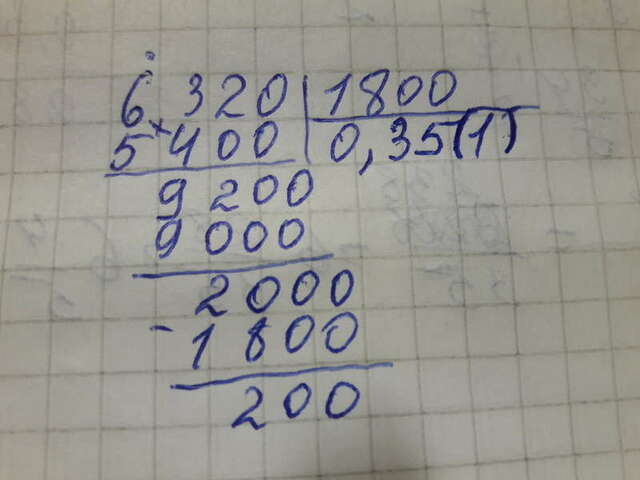 6 320 | 1800
5 400 | 0,35(1)
9200
9000
2000
- 1800
200